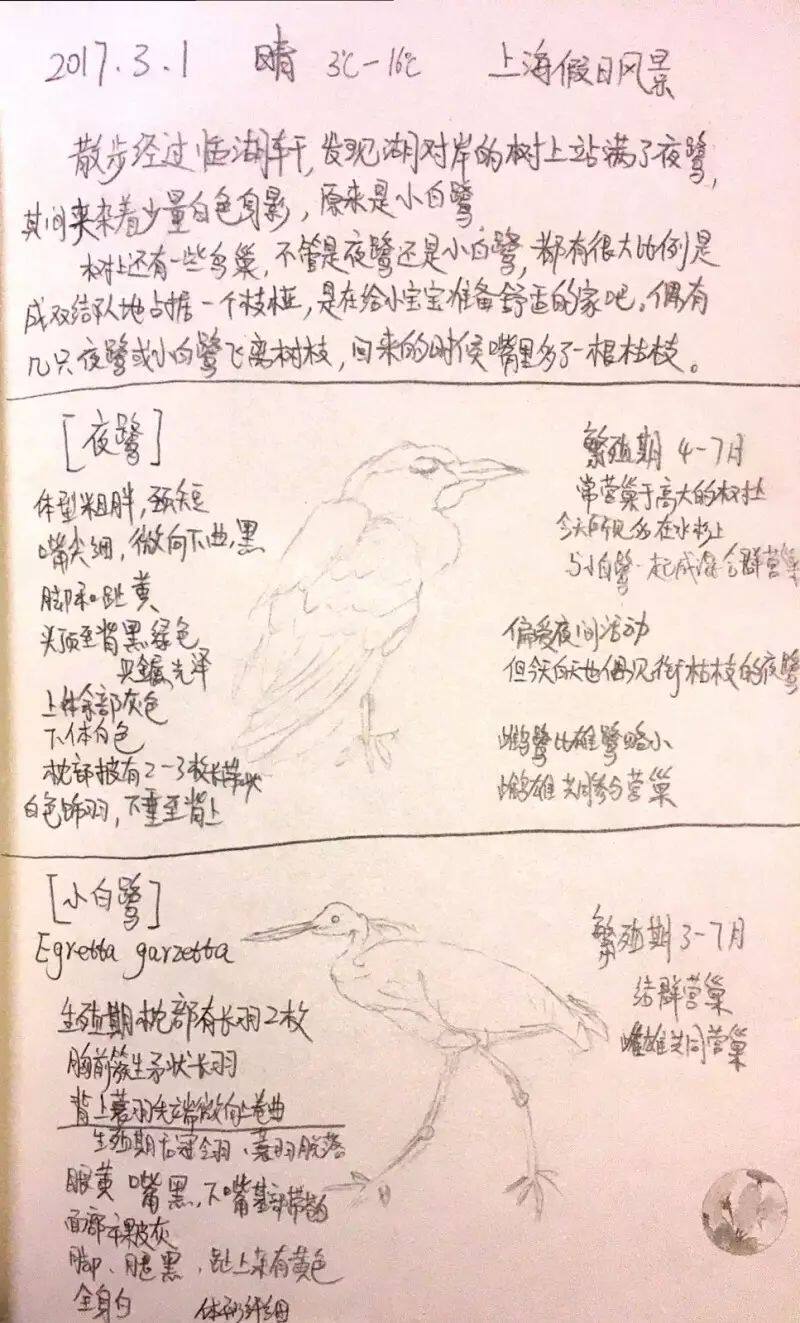 2017.3.1 晴 3℃-16℃ 上海假日风景
散步经过临湖轩,发现湖对岸的树上站满了夜鹭,
其间夹杂着少量白色身影,原来是小白鹭.
树上还有一些鸟巢,不管是夜鹭还是小白鹭,都有很大比例是
成双结队地占据一个枝桠,是在给小宝宝准备舒适的家吧。偶有
几只夜鹭或小白鹭飞离树枝,回来的时候嘴里多了一根枯枝。
[夜鹭]
体型粗胖,颈短
嘴尖细,微向下曲,黑
脚和趾黄
头顶至背黑绿色
具金属光泽
上体余部灰色
下体白色
枕部披有2-3枚长带状
白色饰羽,下垂至背上
繁殖期 4-7月
常营巢于高大的树上
今天所见多在水杉上
与小白鹭一起成混合群营巢
偏爱夜间活动
但今天白天也偶见衔枯枝的夜鹭
雌鹭比雄鹭略小
雌雄共同参与营巢
[小白鹭]
Egretta garzetta
生殖期枕部有长羽2枚
胸前簇生矛状长羽
背上蓑羽先端微向上卷曲
生殖期后冠羽、蓑羽脱落
眼黄 嘴黑,下嘴基部带
面部裸皮灰
脚、腿黑,趾上来有黄色
全身白 体形纤细
繁殖期 3-7月
结群营巢
雌雄共同营巢